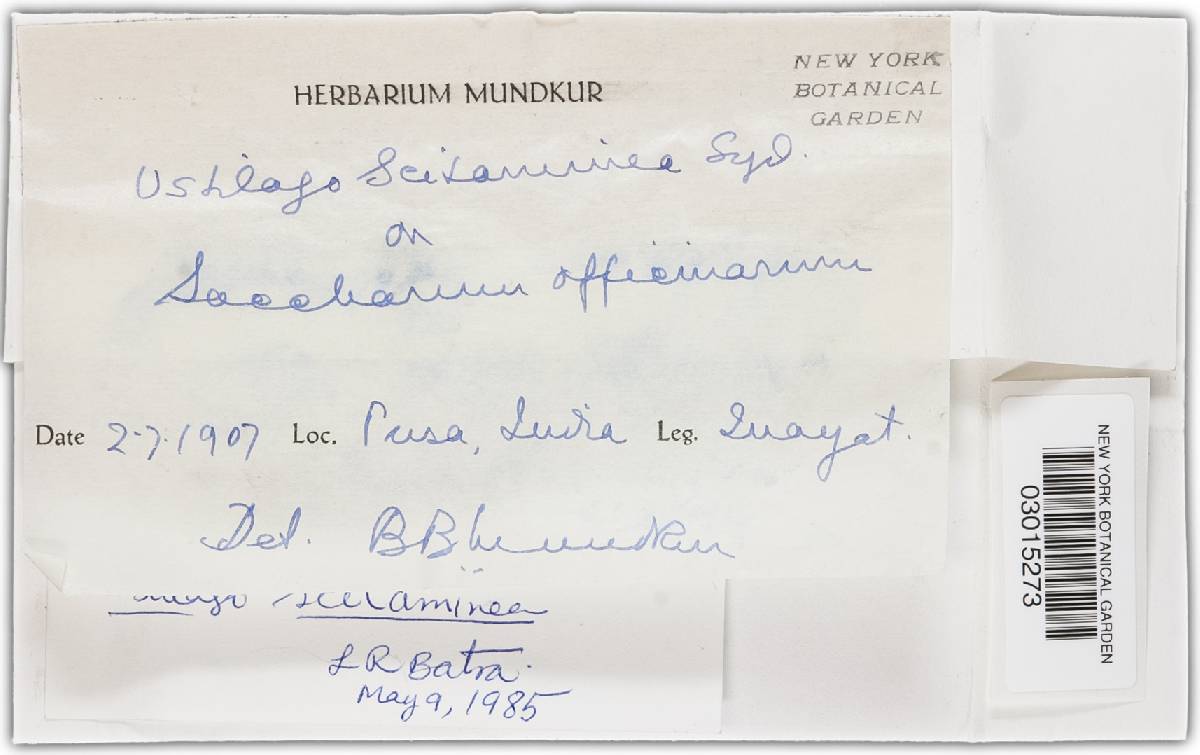 HERBARIUM MUNDKUR
NEW YORK
BOTANICAL
GARDEN
Ustilago Scitaminea Syd.
on
Saccharum officinarum
Date 2-7-1907 Loc. Pusa, India Leg. Inayat.
Det. BBMundkur
scitaminea
LRBatra.
May 9, 1985
NEW YORK BOTANICAL GARDEN
03015273